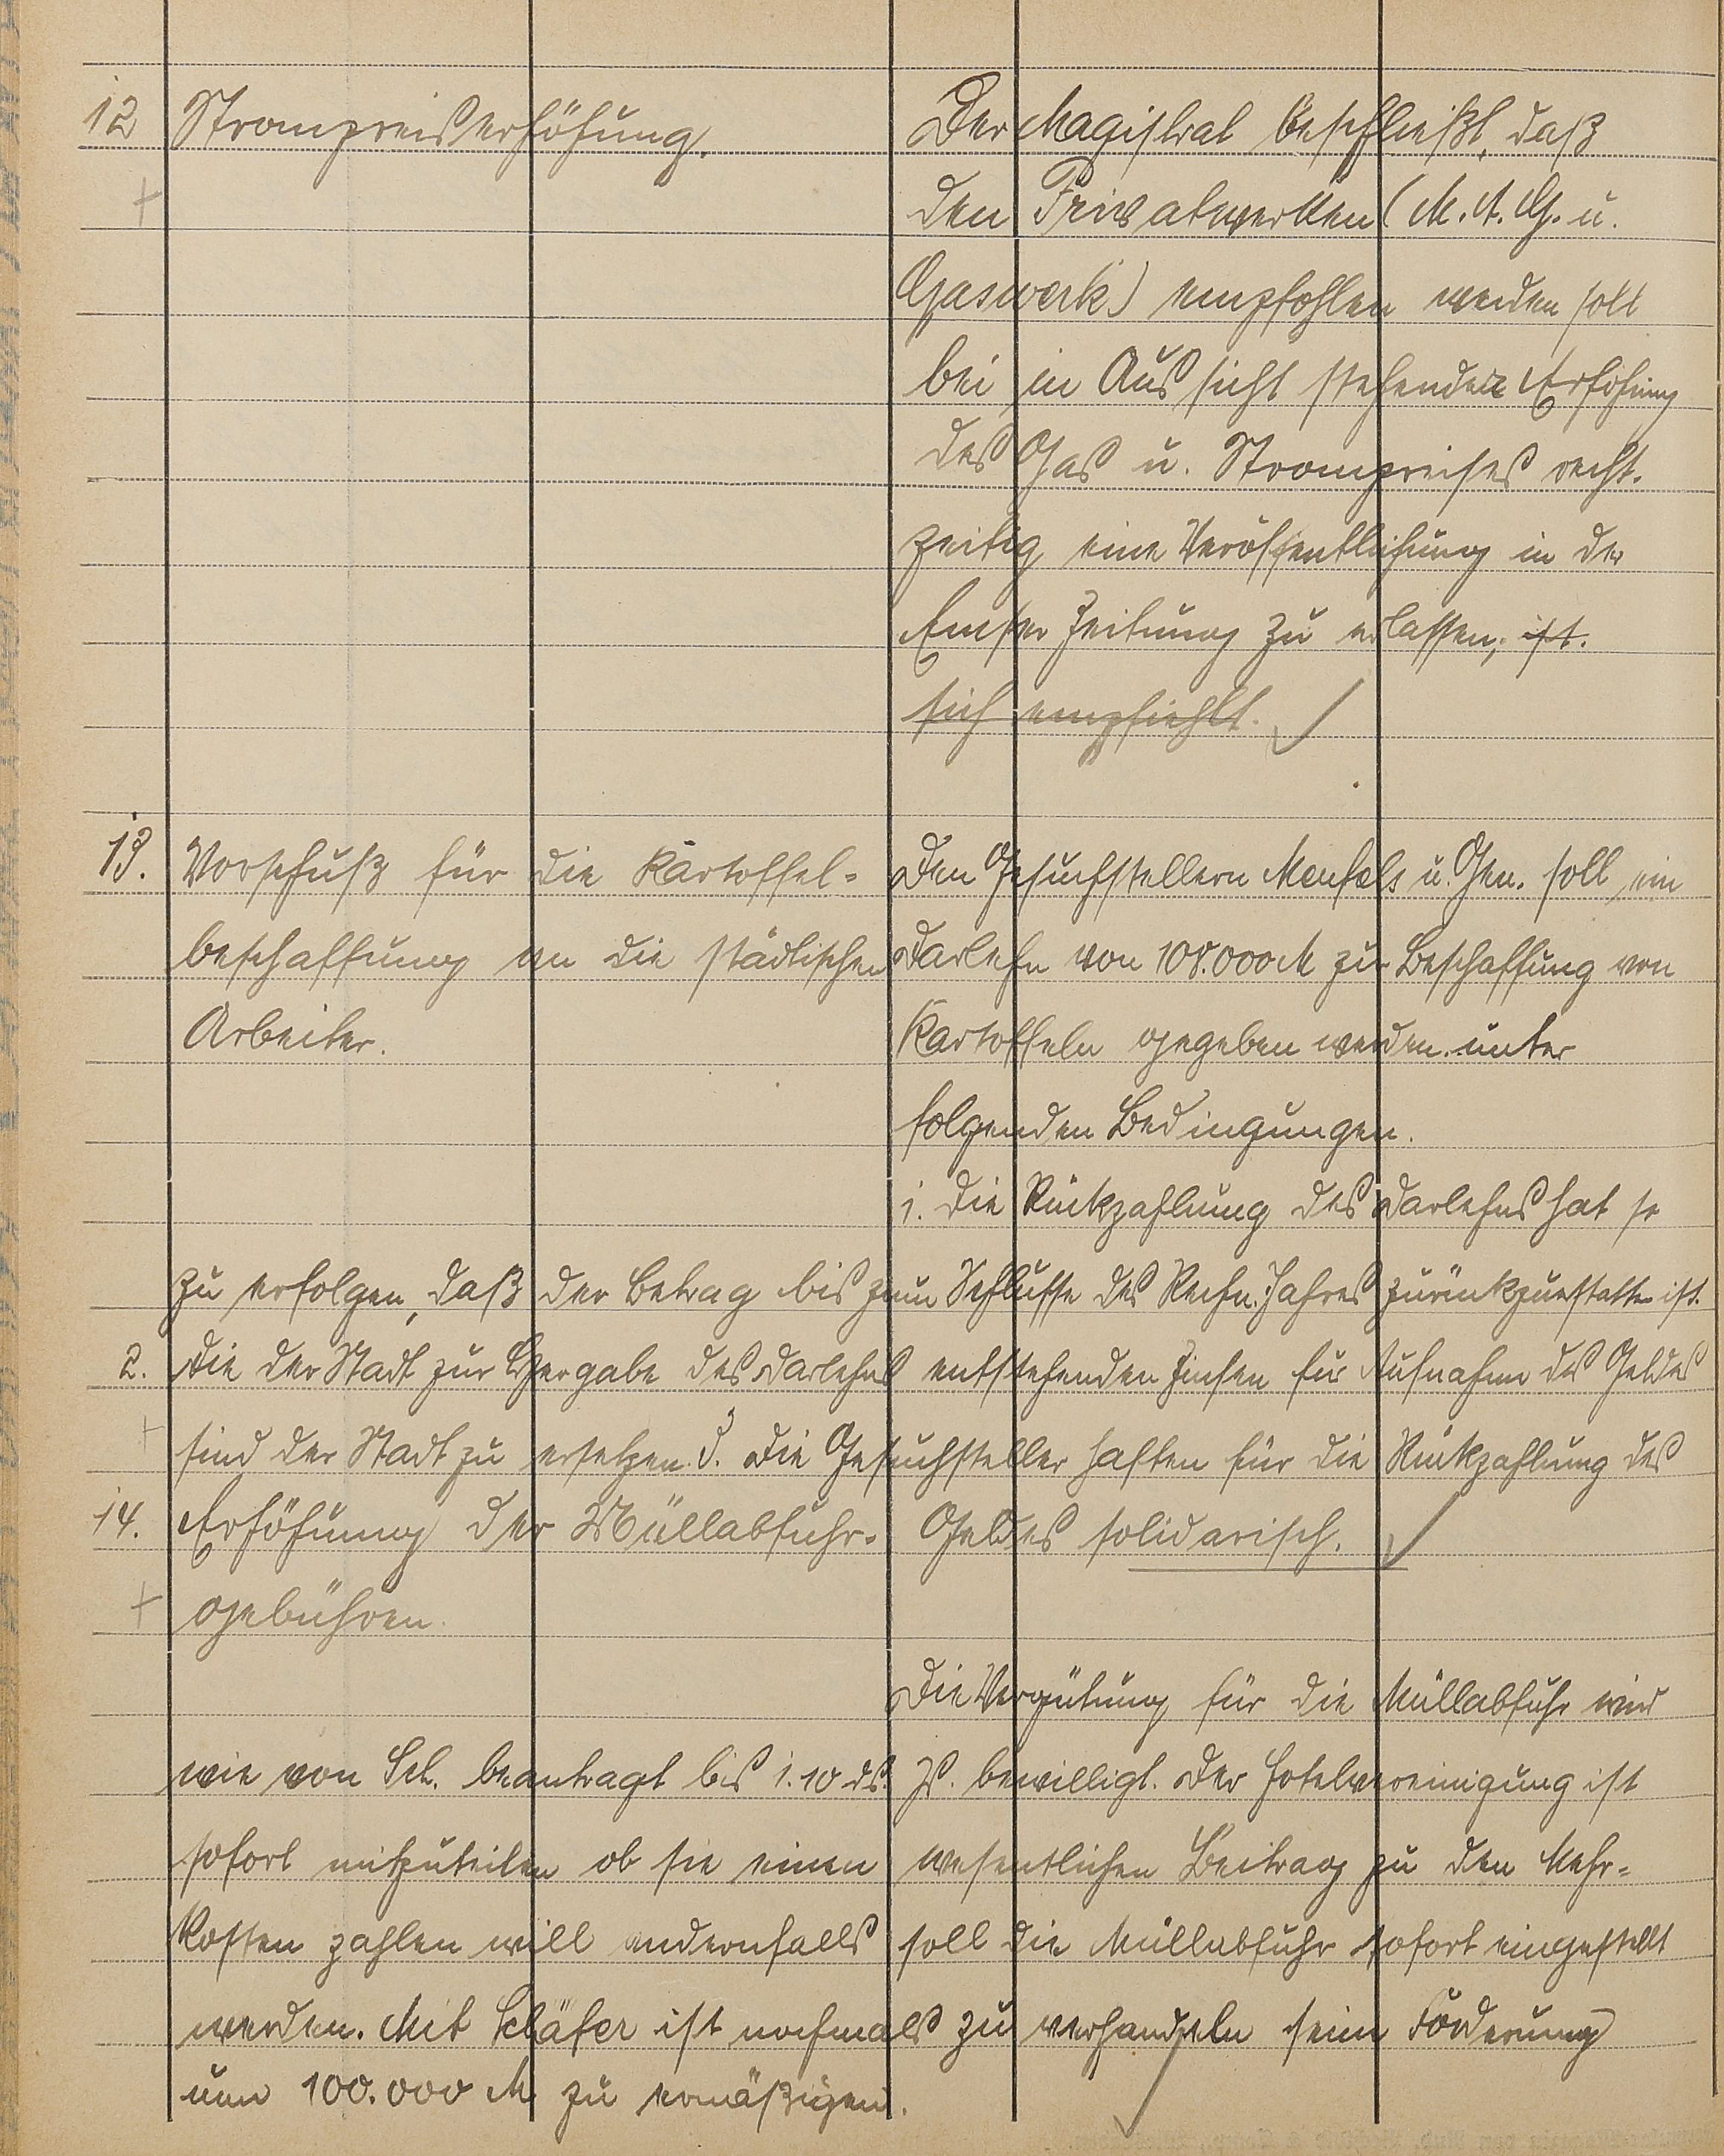 12 Strompreiserhöhung.
Der Magistrat beschließt, daß
den Privatwerken (M.A.G. u.
Gaswerk) empfohlen werden soll
bei in Aussicht stehender Erhöhung
des Gas u. Strompreises recht-
zeitig eine Veröffentlichung in der
Emser Zeitung zu erlassen, ist.
sich empfiehlt.
13. Vorschuß für die Kartoffel-
beschaffung an die städtischen
Arbeiter.
Den Gesuchstellern u. Gen. soll ein
Darlehn von 108.000 M zur Beschaffung von
Kartoffeln gegeben werden unter
folgenden Bedingungen.
1. Die Rückzahlung des Darlehns hat so
zu erfolgen, daß der Betrag bis zum Schlusse des Rechn. Jahres ist.
2. Die der Stadt zur Hergabe des Darlehns entstehenden Zinsen für Aufnahme des Geldes
sind der Stadt zu ersetzen. 3. Die Gesuchsteller haften für die Rückzahlung des
Geldes solidarisch.
14. Erhöhung der Müllabfuhr-
gebühren.
Die Vergütung für die Müllabfuhr wird
wie von Sch. beantragt bis 1.10 ds. Js. bewilligt. Der Hotelvereinigung ist
sofort mitzuteilen ob sie einen wesentlichen Beitrag zu den Mehr-
kosten zahlen will andernfalls soll die Müllabfuhr sofort eingestellt
werden. Mit Schäfer ist nochmals zu verhandeln seine Forderung
um 100.000 M zu ermäßigen.